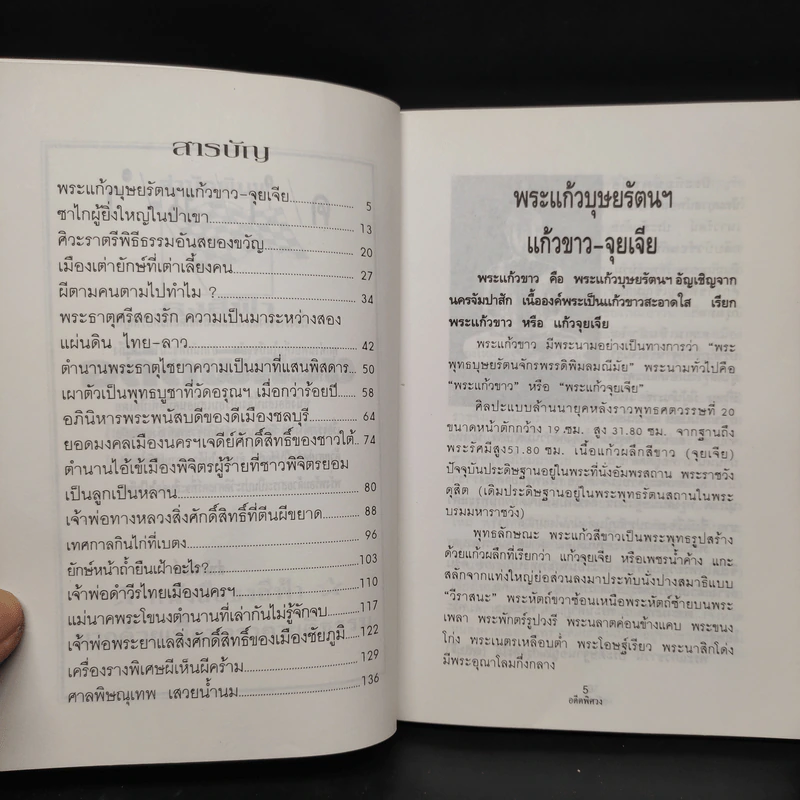 สารบัญ
พระแก้วบุษยรัตนฯแก้วขาว-จุยเจีย.......................5
ซาไกผู้ยิ่งใหญ่ในป่าเขา.......................13
ศิวะราตรีพิธีธรรมอันสยองขวัญ.......................20
เมืองเต่ายักษ์ที่เต่าเลี้ยงคน.......................27
ผีตามคนตามไปทำไม ?.......................34
พระธาตุศรีสองรัก ความเป็นมาระหว่างสอง
แผ่นดิน ไทย-ลาว.......................42
ตำนานพระธาตุไชยาความเป็นมาที่แสนพิสดาร...50
เผาตัวเป็นพุทธบูชาที่วัดอรุณฯ เมื่อกว่าร้อยปี......58
อภินิหารพระพนัสบดีของดีเมืองชลบุรี.............64
ยอดมงคลเมืองนครฯเจดีย์ศักดิ์สิทธิ์ของชาวใต้..74
ตำนานไอ้เข้เมืองพิจิตรผู้ร้ายที่ชาวพิจิตรยอม
เป็นลูกเป็นหลาน.......................80
เจ้าพ่อทางหลวงสิ่งศักดิ์สิทธิ์ที่ตีนผีขยาด.........88
เทศกาลกินไก่ที่เบตง.......................96
ยักษ์หน้าถ้ำยืนเฝ้าอะไร?.......................103
เจ้าพ่อดำวีรไทยเมืองนครฯ.......................110
แม่นาคพระโขนงตำนานที่เล่ากันไม่รู้จักจบ.......117
เจ้าพ่อพระยาแลสิ่งศักดิ์สิทธิ์ของเมืองชัยภูมิ..122
เครื่องรางพิเศษผีเห็นผีคร้าม.......................129
ศาลพิษณุเทพ เสวยน้ำนม.......................136
พระแก้วบุษยรัตนฯ
แก้วขาว-จุยเจีย
พระแก้วขาว คือ พระแก้วบุษยรัตนฯ อัญเชิญจาก
นครจัมปาสัก เนื้อองค์พระเป็นแก้วขาวสะอาดใส เรียก
พระแก้วขาว หรือ แก้วจุยเจีย
พระแก้วขาว มีพระนามอย่างเป็นทางการว่า "พระ
พุทธบุษยรัตนจักรพรรดิพิมลมณีมัย" พระนามทั่วไปคือ
"พระแก้วขาว" หรือ "พระแก้วจุยเจีย"
ศิลปะแบบล้านนายุคหลังราวพุทธศตวรรษที่ 20
ขนาดหน้าตักกว้าง 19.ซม. สูง 31.80 ซม. จากฐานถึง
พระรัศมีสูง51.80 ซม. เนื้อแก้วผลึกสีขาว (จุยเจีย)
ปัจจุบันประดิษฐานอยู่ในพระที่นั่งอัมพรสถาน พระราชวัง
ดุสิต (เดิมประดิษฐานอยู่ในพระพุทธรัตนสถานในพระ
บรมมหาราชวัง)
พุทธลักษณะ พระแก้วสีขาวเป็นพระพุทธรูปสร้าง
ด้วยแก้วผลึกที่เรียกว่า แก้วจุยเจีย หรือเพชรน้ำค้าง แกะ
สลักจากแท่งใหญ่ย่อส่วนลงมาประทับนั่งปางสมาธิแบบ
"วีราสนะ" พระหัตถ์ขวาซ้อนเหนือพระหัตถ์ซ้ายบนพระ
เพลา พระพักตร์รูปวงรี พระนลาตค่อนข้างแคบ พระขนง
โก่ง พระเนตรเหลือบต่ำ พระโอษฐ์เรียว พระนาสิกโด่ง
มีพระอุณาโลมกึ่งกลาง
5
อดีตพิศวง